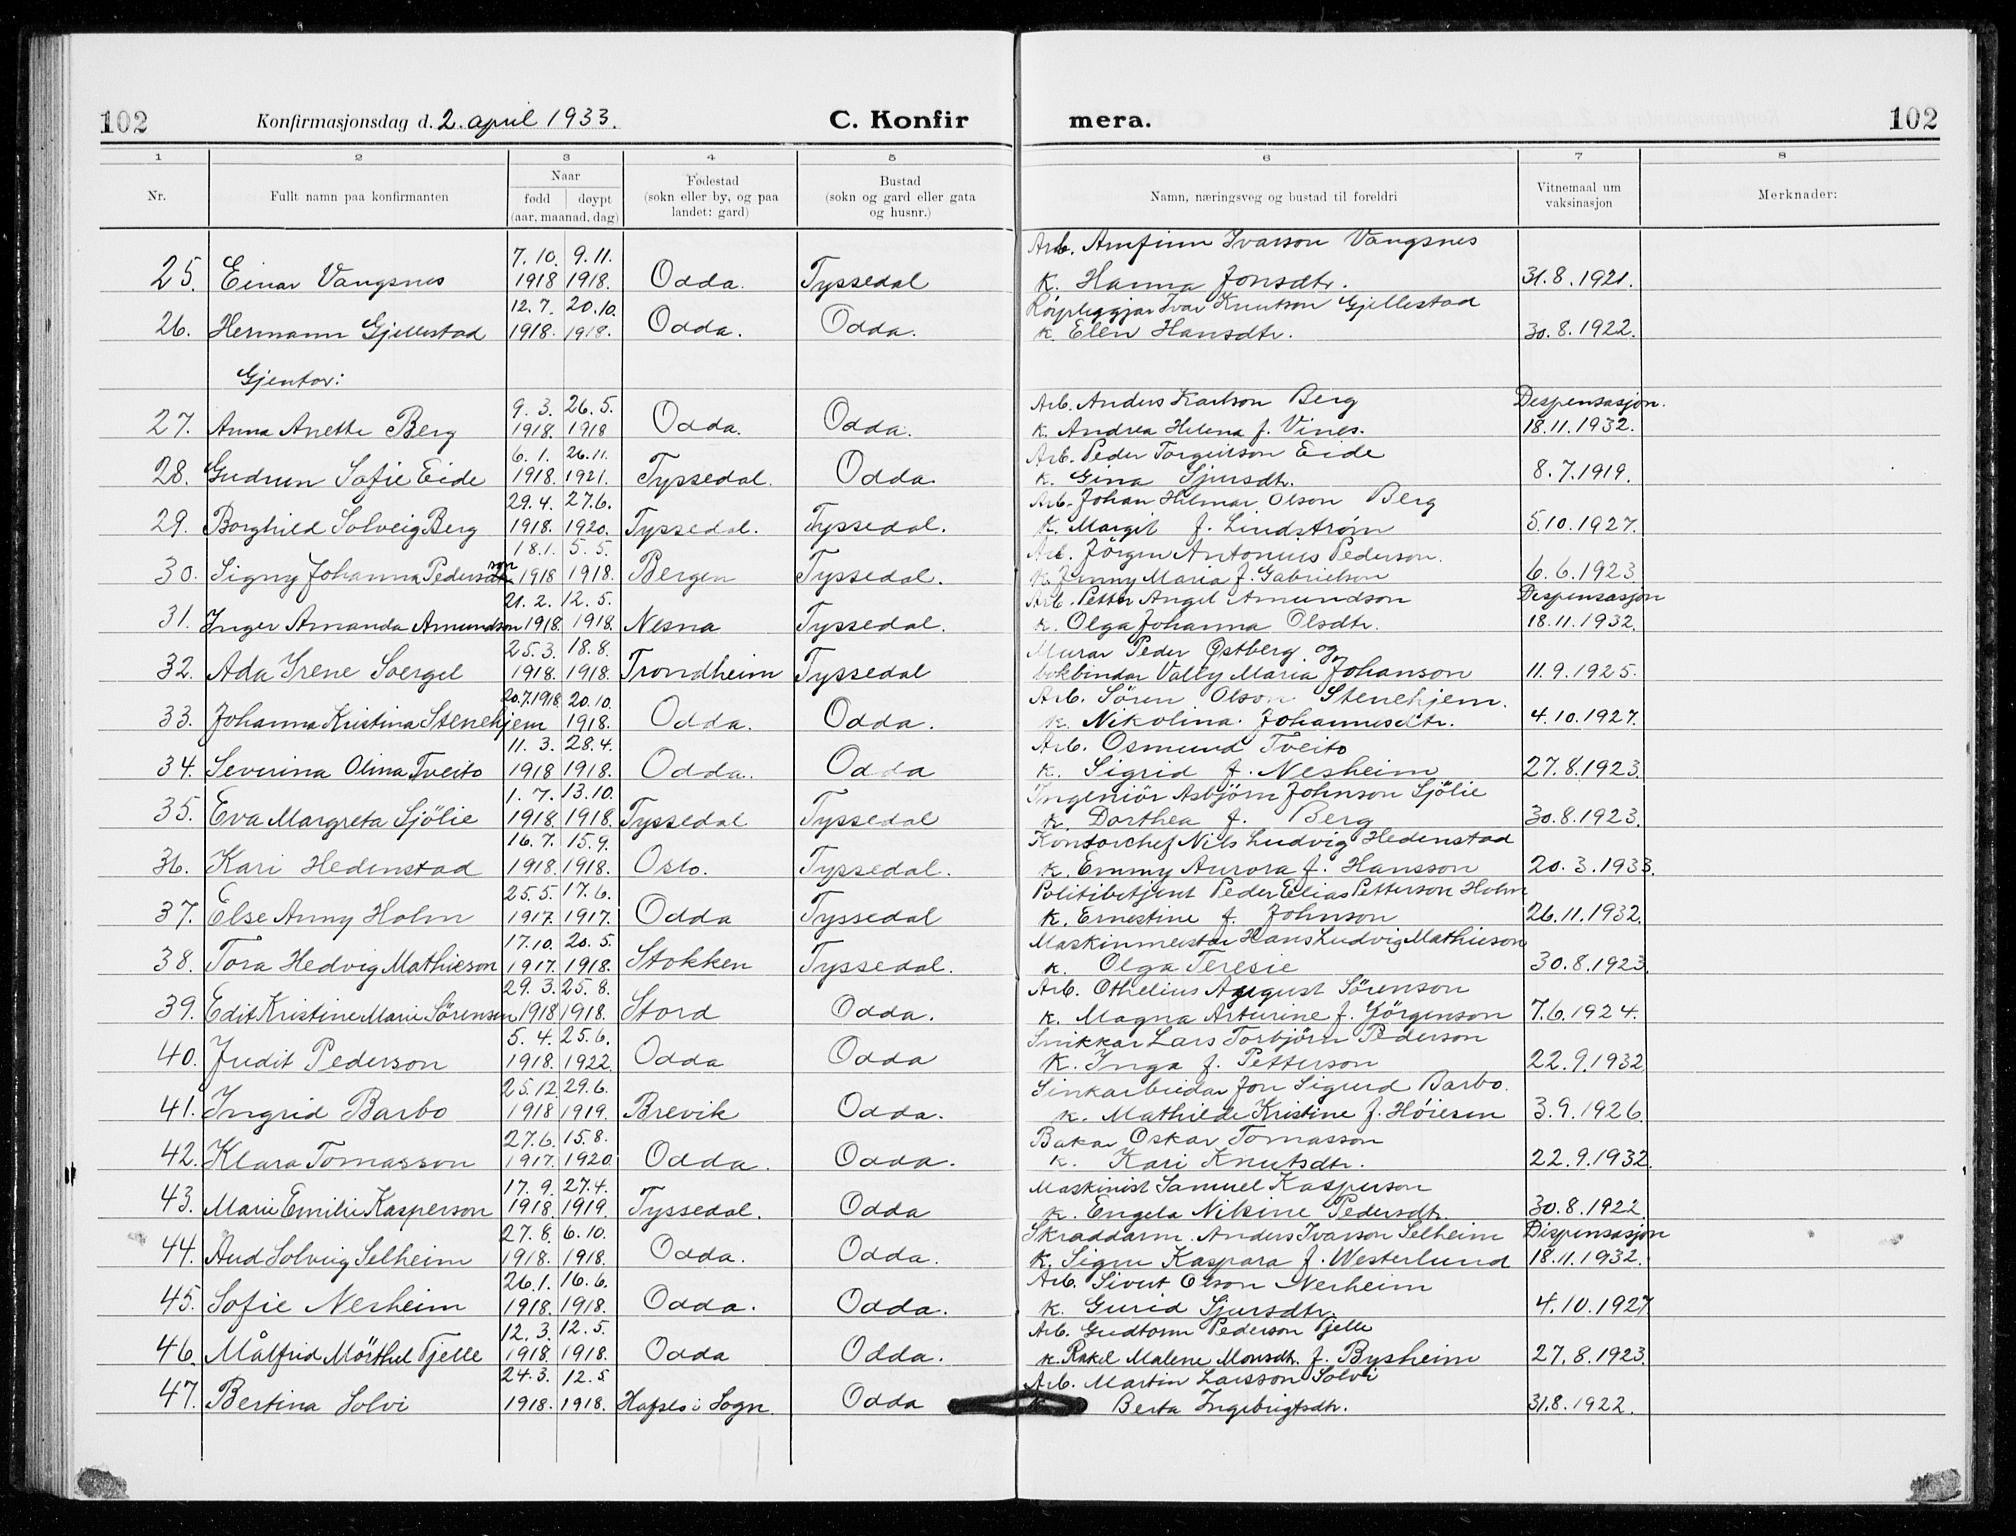 102 Konfirmasjonsdag d. 2. april 1933. C. Konfir mera. 102
1 2 3 4 5 6 7 8
Nr. Fullt namn paa konfirmanten Naar fødd døypt (aar, maanad, dag) Fødestad (sokn eller by, og paa landet: gard) Bustad (sokn og gard eller gata og husnr.) Namn, næringsveg og bustad til foreldri Vitnemaal um vaksinasjon Merknader:
7.10. 9.11. Arb. Arnfinn Ivarson Vangsnes
25. Einar Vangsnes 1918 1918. Odda. Tyssedal K. Hanna Jonsdtr. 31.8.1921.
12.7. 20.10. Røyrleggjar Ivar Knutson Gjellestad
26. Hermann Gjellestad 1918. 1918. Odda. Odda. K. Elen Hansdtr. 30.8.1922.
Gjentor:
9.3. 26.5. Arb. Anders Karlson Berg Dispensasjon.
27. Anna Anette Berg 1918. 1918 Odda. Odda. K. Andrea Helena f. Vines. 18.11.1932.
6.1. 26.11. Arb. Peder Torgeirson Eide
28. Gudrun Sofie Eide 1918. 1921. Tyssedal. Odda. K. Gina Sjursdtr. 8.7.1919.
29.4. 27.6. Arb. Johan Hilmar Olson Berg
29. Borghild Solveig Berg 1918. 1920. Tyssedal. Tyssedal. K. Margit f. Lindstrøm 5.10.1927.
18.1. 5.5. Arb. Jörgen Antonius Pederson.
30. Signy Johanna Pederson 1918 1918. Bergen Tyssedal. K. Jenny Maria f. Gabrielson 6.6.1923
21.2. 12.5. Arb. Petter Angel Amundson Dispensasjon
31. Inger Amanda Amundson 1918. 1918. Nesna Tyssedal. K. Olga Johanna Olsdtr. 18.11.1932.
25.3. 18.8. Murar Peder Østberg og
32. Ada Irene Soergel 1918. 1918. Trondheim Tyssedal bokbindar Vally Maria Johanson 11.9.1925.
20.7.1918 20.10. Arb. Sören Olson Stenehjem.
33. Johanna Kristina Stenehjem 1918. Odda. Odda. K. Nikolina Johannesdtr. 4.10.1927.
11.3. 28.4. Arb. Osmund Tveito
34. Severina Olina Tveito 1918 1918. Odda. Odda K. Sigrid f. Nesheim 27.8.1923.
1.7. 13.10. Ingeniör Asbjörn Johnson Sjölie
35. Eva Margreta Sjölie 1918. 1918. Tyssedal Tyssedal K. Dorthea f. Berg 30.8.1923.
16.7. 15.9. Kontorchef Nils Ludvig Hedenstad
36. Kari Hedenstad 1918. 1918. Oslo. Tyssedal. K. Emmy Aurora f. Hansson 20.3.1933.
25.5. 17.6. Politibetjent Peder Elias Petterson Holm
37. Else Anny Holm 1917. 1917. Odda Tyssedal K. Ernestine f. Johnson 26.11.1932.
17.10. 20.5. Maskinmeister Hans Ludvig Mathieson
38. Tora Hedvig Mathieson 1917. 1918. Stokken Tyssedal. K. Olga Teresie 30.8.1923.
29.3. 25.8. Arb. Othelius August Sörenson
39. Edit Kristine Marie Sörensen 1918 1918. Stord Odda. K. Magna Arturine f. Jörgenson 7.6.1924.
5.4. 25.6. Snikkar Lars Torbjörn Pederson
40. Judit Pederson 1918. 1922. Odda Odda K. Inga f. Petterson 22.9.1932
25.12 29.6. Sinkarbeidar Jon Sigurd Barbo.
41. Ingrid Barbo 1918 1919. Brevik Odda. K. Mathilde Kristine f. Höiesen 3.9.1926.
27.6. 15.8. Bakar Oskar Tomasson
42. Klara Tomasson 1917. 1920. Odda. Odda. K. Kari Knutsdtr. 22.9.1932.
17.9. 27.4. Maskinist Samuel Kasperson
43. Marie Emilie Kasperson 1918. 1919. Tyssedal. Odda K. Engela Nikine Pedersdtr. 30.8.1922
27.8. 6.10. Skraddarm. Anders Ivarson Selheim Dispensasjon
44. Aud Solveig Selheim 1918. 1918. Odda. Odda. K. Signe Kaspara f. Westerlund 18.11.1932.
26.1. 16.6. Arb. Sivert Olson Nerheim
45. Sofie Nerheim 1918. 1918. Odda. Odda. K. Gurid Sjursdtr. 4.10.1927
12.3. 12.5. Arb. Gudtorm Pederson Tjelle
46. Målfrid Mörthel Tjelle 1918. 1918. Odda Odda. K. Rakel Malene Monsdtr. f. Bysheim 27.8.1923.
24.3. 12.5 Arb. Martin Larsson Solvi
47. Bertina Solvi 1918. 1918. Hafslo i Sogn. Odda K. Berta Ingebrigtsdtr. 31.8.1922.